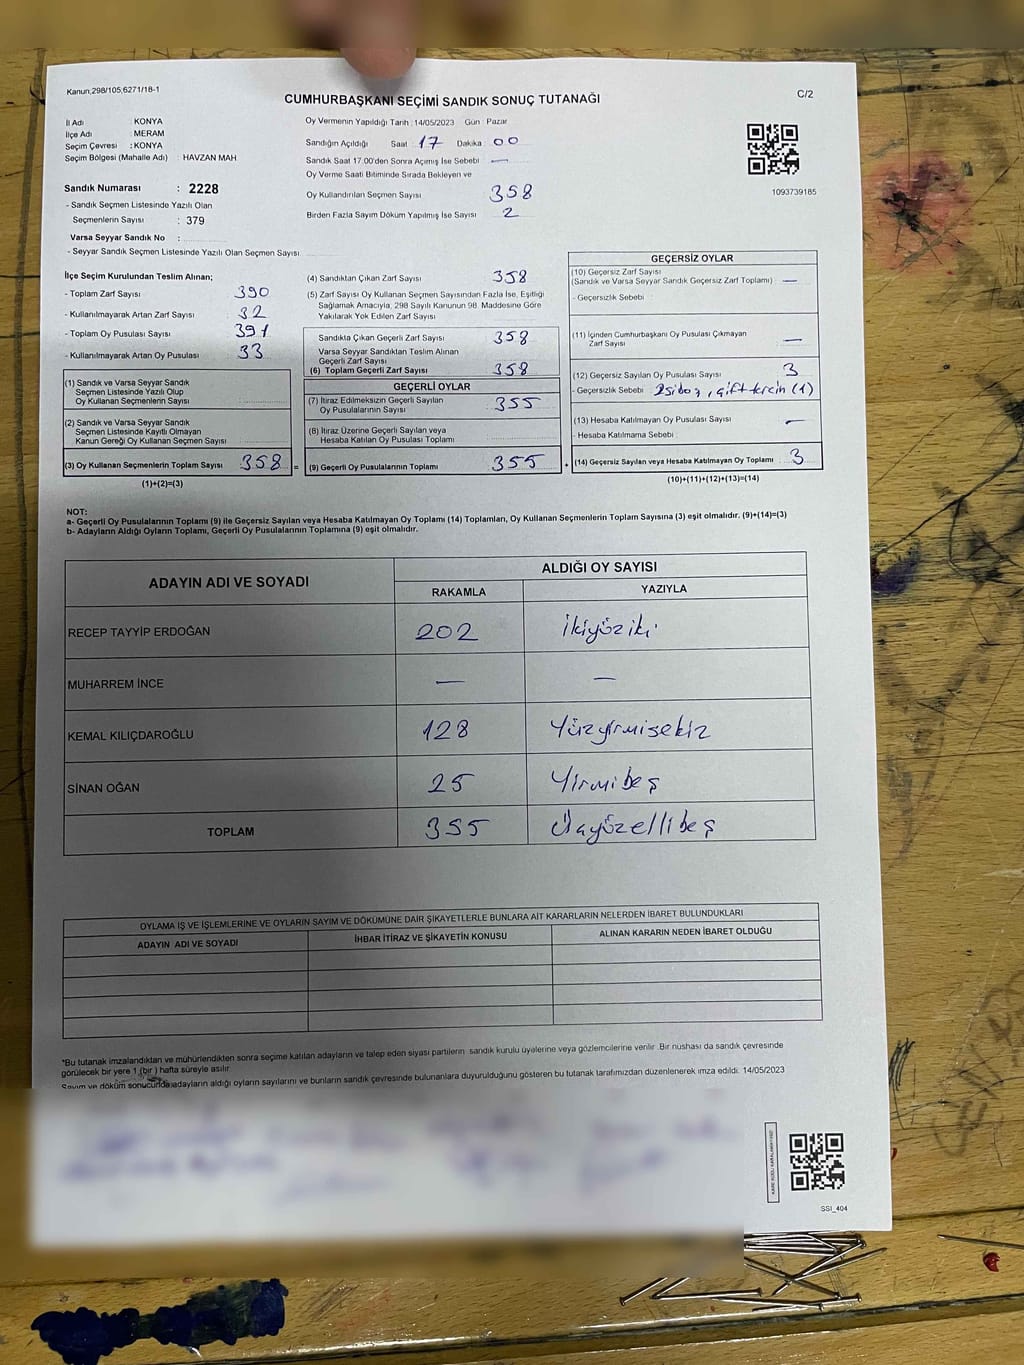 Kanun;298/105,6271/18-1
CUMHURBAŞKANI SEÇİMİ SANDIK SONUÇ TUTANAĞI
C/2
İl Adı : KONYA
İlçe Adı : MERAM
Seçim Çevresi : KONYA
Seçim Bölgesi (Mahalle Adı) : HAVZAN MAH
Sandık Numarası : 2228
- Sandık Seçmen Listesinde Yazılı Olan
Seçmenlerin Sayısı : 379
Varsa Seyyar Sandık No :
- Seyyar Sandık Seçmen Listesinde Yazılı Olan Seçmen Sayısı
Oy Vermenin Yapıldığı Tarih : 14/05/2023 Gün : Pazar
Sandığın Açıldığı Saat 17 Dakika 00
Sandık Saat 17.00'den Sonra Açımış İse Sebebi —
Oy Verme Saati Bitiminde Sırada Bekleyen ve
Oy Kullandırılan Seçmen Sayısı 358
Birden Fazla Sayım Döküm Yapılmış İse Sayısı 2
1093739185
İlçe Seçim Kurulundan Teslim Alınan;
- Toplam Zarf Sayısı 390
- Kullanılmayarak Artan Zarf Sayısı 32
- Toplam Oy Pusulası Sayısı 391
- Kullanılmayarak Artan Oy Pusulası 33
(1) Sandık ve Varsa Seyyar Sandık
Seçmen Listesinde Yazılı Olup
Oy Kullanan Seçmenlerin Sayısı
(2) Sandık ve Varsa Seyyar Sandık
Seçmen Listesinde Kayıtlı Olmayan
Kanun Gereği Oy Kullanan Seçmen Sayısı
(3) Oy Kullanan Seçmenlerin Toplam Sayısı 358 =
(1)+(2)=(3)
(4) Sandıktan Çıkan Zarf Sayısı 358
(5) Zarf Sayısı Oy Kullanan Seçmen Sayısından Fazla İse, Eşitliği
Sağlamak Amacıyla, 298 Sayılı Kanunun 98. Maddesine Göre
Yakılarak Yok Edilen Zarf Sayısı
Sandıkta Çıkan Geçerli Zarf Sayısı 358
Varsa Seyyar Sandıktan Teslim Alınan
Geçerli Zarf Sayısı
(6) Toplam Geçerli Zarf Sayısı 358
GEÇERLİ OYLAR
(7) İtiraz Edilmeksizin Geçerli Sayılan
Oy Pusulalarının Sayısı 355
(8) İtiraz Üzerine Geçerli Sayılan veya
Hesaba Katılan Oy Pusulası Toplamı
(9) Geçerli Oy Pusulalarının Toplamı 355 +
GEÇERSİZ OYLAR
(10) Geçersiz Zarf Sayısı
(Sandık ve Varsa Seyyar Sandık Geçersiz Zarf Toplamı) —
- Geçersizlik Sebebi :
(11) İçinden Cumhurbaşkanı Oy Pusulası Çıkmayan
Zarf Sayısı —
(12) Geçersiz Sayılan Oy Pusulası Sayısı 3
- Geçersizlik Sebebi çift tercih (1)
(13) Hesaba Katılmayan Oy Pusulası Sayısı —
- Hesaba Katılmama Sebebi :
(14) Geçersiz Sayılan veya Hesaba Katılmayan Oy Toplamı : 3
(10)+(11)+(12)+(13)=(14)
NOT:
a- Geçerli Oy Pusulalarının Toplamı (9) ile Geçersiz Sayılan veya Hesaba Katılmayan Oy Toplamı (14) Toplamları, Oy Kullanan Seçmenlerin Toplam Sayısına (3) eşit olmalıdır. (9)+(14)=(3)
b- Adayların Aldığı Oyların Toplamı, Geçerli Oy Pusulalarının Toplamına (9) eşit olmalıdır.
ADAYIN ADI VE SOYADI ALDIĞI OY SAYISI
RAKAMLA YAZIYLA
RECEP TAYYİP ERDOĞAN 202 İkiyüziki
MUHARREM İNCE — —
KEMAL KILIÇDAROĞLU 128 Yüzyirmisekiz
SİNAN OĞAN 25 Yirmibeş
TOPLAM 355 Üçyüzellibeş
OYLAMA İŞ VE İŞLEMLERİNE VE OYLARIN SAYIM VE DÖKÜMÜNE DAİR ŞİKAYETLERLE BUNLARA AİT KARARLARIN NELERDEN İBARET BULUNDUKLARI
ADAYIN ADI VE SOYADI İHBAR İTİRAZ VE ŞİKAYETİN KONUSU ALINAN KARARIN NEDEN İBARET OLDUĞU
*Bu tutanak imzalandıktan ve mühürlendikten sonra seçime katılan adayların ve talep eden siyasi partilerin sandık kurulu üyelerine veya gözlemcilerine verilir. Bir nüshası da sandık çevresinde
görülecek bir yere 1 (bir ) hafta süreyle asılır.
Sayım ve döküm sonucunda adayların aldığı oyların sayılarını ve bunların sandık çevresinde bulunanlara duyurulduğunu gösteren bu tutanak tarafımızdan düzenlenerek imza edildi. 14/05/2023
SSI_404